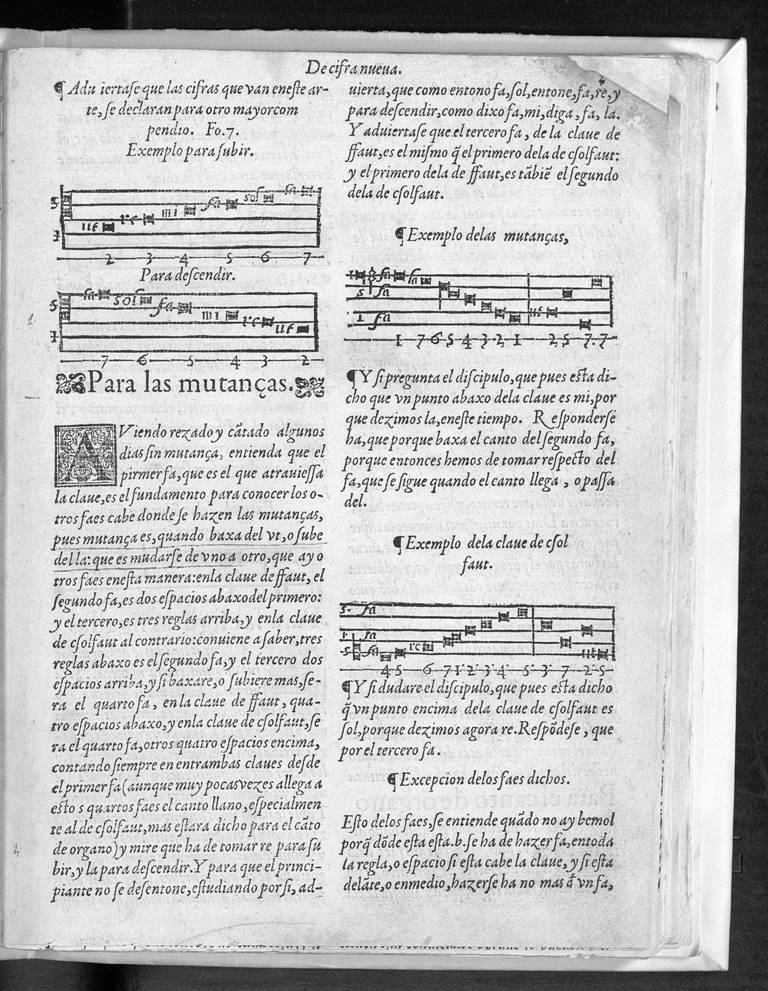 De cifra nueua.
¶ Adu iertase que las cifras que van eneste ar-
te, se declaran para otro mayor com
pendio. Fo.7.
Exemplo para subir.
5 fa
vt re mi fa sol fa
1
2 3 4 5 6 7
Para descendir.
fa sol fa mi re vt
5
1
7 6 5 4 3 2
Para las mutanças.
AViendo rezado y cãtado algunos
dias sin mutança, entienda que el
pirmer fa, que es el que atrauiessa
la claue, es el fundamento para conocer los o-
tros faes cabe donde se hazen las mutanças,
pues mutança es, quando baxa del vt, o sube
del la: que es mudarse de vno a otro, que ay o
tros faes enesta manera: enla claue de ffaut, el
segundo fa, es dos espacios abaxo del primero:
y el tercero, es tres reglas arriba, y enla claue
de csolfaut al contrario: conuiene a saber, tres
reglas abaxo es el segundo fa, y el tercero dos
espacios arriba, y si baxare, o subiere mas, se-
ra el quarto fa, enla claue de ffaut, qua-
tro espacios abaxo, y enla claue de csolfaut, se
ra el quarto fa, otros quatro espacios encima,
contando siempre en entrambas claues desde
el primer fa (aunque muy pocas vezes allega a
esto s quartos faes el canto llano, especialmen
te al de csolfaut, mas estara dicho para el cãto
de organo) y mire que ha de tomar re para su
bir, y la para descendir. Y para que el princi-
piante no se desentone, estudiando por si, ad-
uierta, que como entono fa, sol, entone, fa, re, y
para descendir, como dixo fa, mi, diga, fa, la.
Y aduiertase que el tercero fa, de la claue de
ffaut, es el mismo q̃ el primero dela de csolfaut:
y el primero dela de ffaut, es tãbiẽ el segundo
dela de csolfaut.
¶ Exemplo delas mutanças,
fa la
5 fa
1 fa
1 7 6 5 4 3 2 1 2 5 7 7
¶ Y si pregunta el discipulo, que pues esta di-
cho que vn punto abaxo dela claue es mi, por
que dezimos la, eneste tiempo. Responderse
ha, que porque baxa el canto del segundo fa,
porque entonces hemos de tomar respecto del
fa, que se sigue quando el canto llega, o passa
del.
¶ Exemplo dela claue de csol
faut.
5 fa
1 fa
5 fa re
4 5 6 7 1 2 3 4 5 3 7 2 5
¶ Y si dudare el discipulo, que pues esta dicho
q̃ vn punto encima dela claue de csolfaut es
sol, porque dezimos agora re. Respõdese, que
por el tercero fa.
¶ Excepcion delos faes dichos.
Esto delos faes, se entiende quãdo no ay bemol
porq̃ dõde esta esta .b. se ha de hazer fa, en toda
la regla, o espacio si esta cabe la claue, y si esta
delãte, o enmedio, hazerse ha no mas q̃ vn fa,